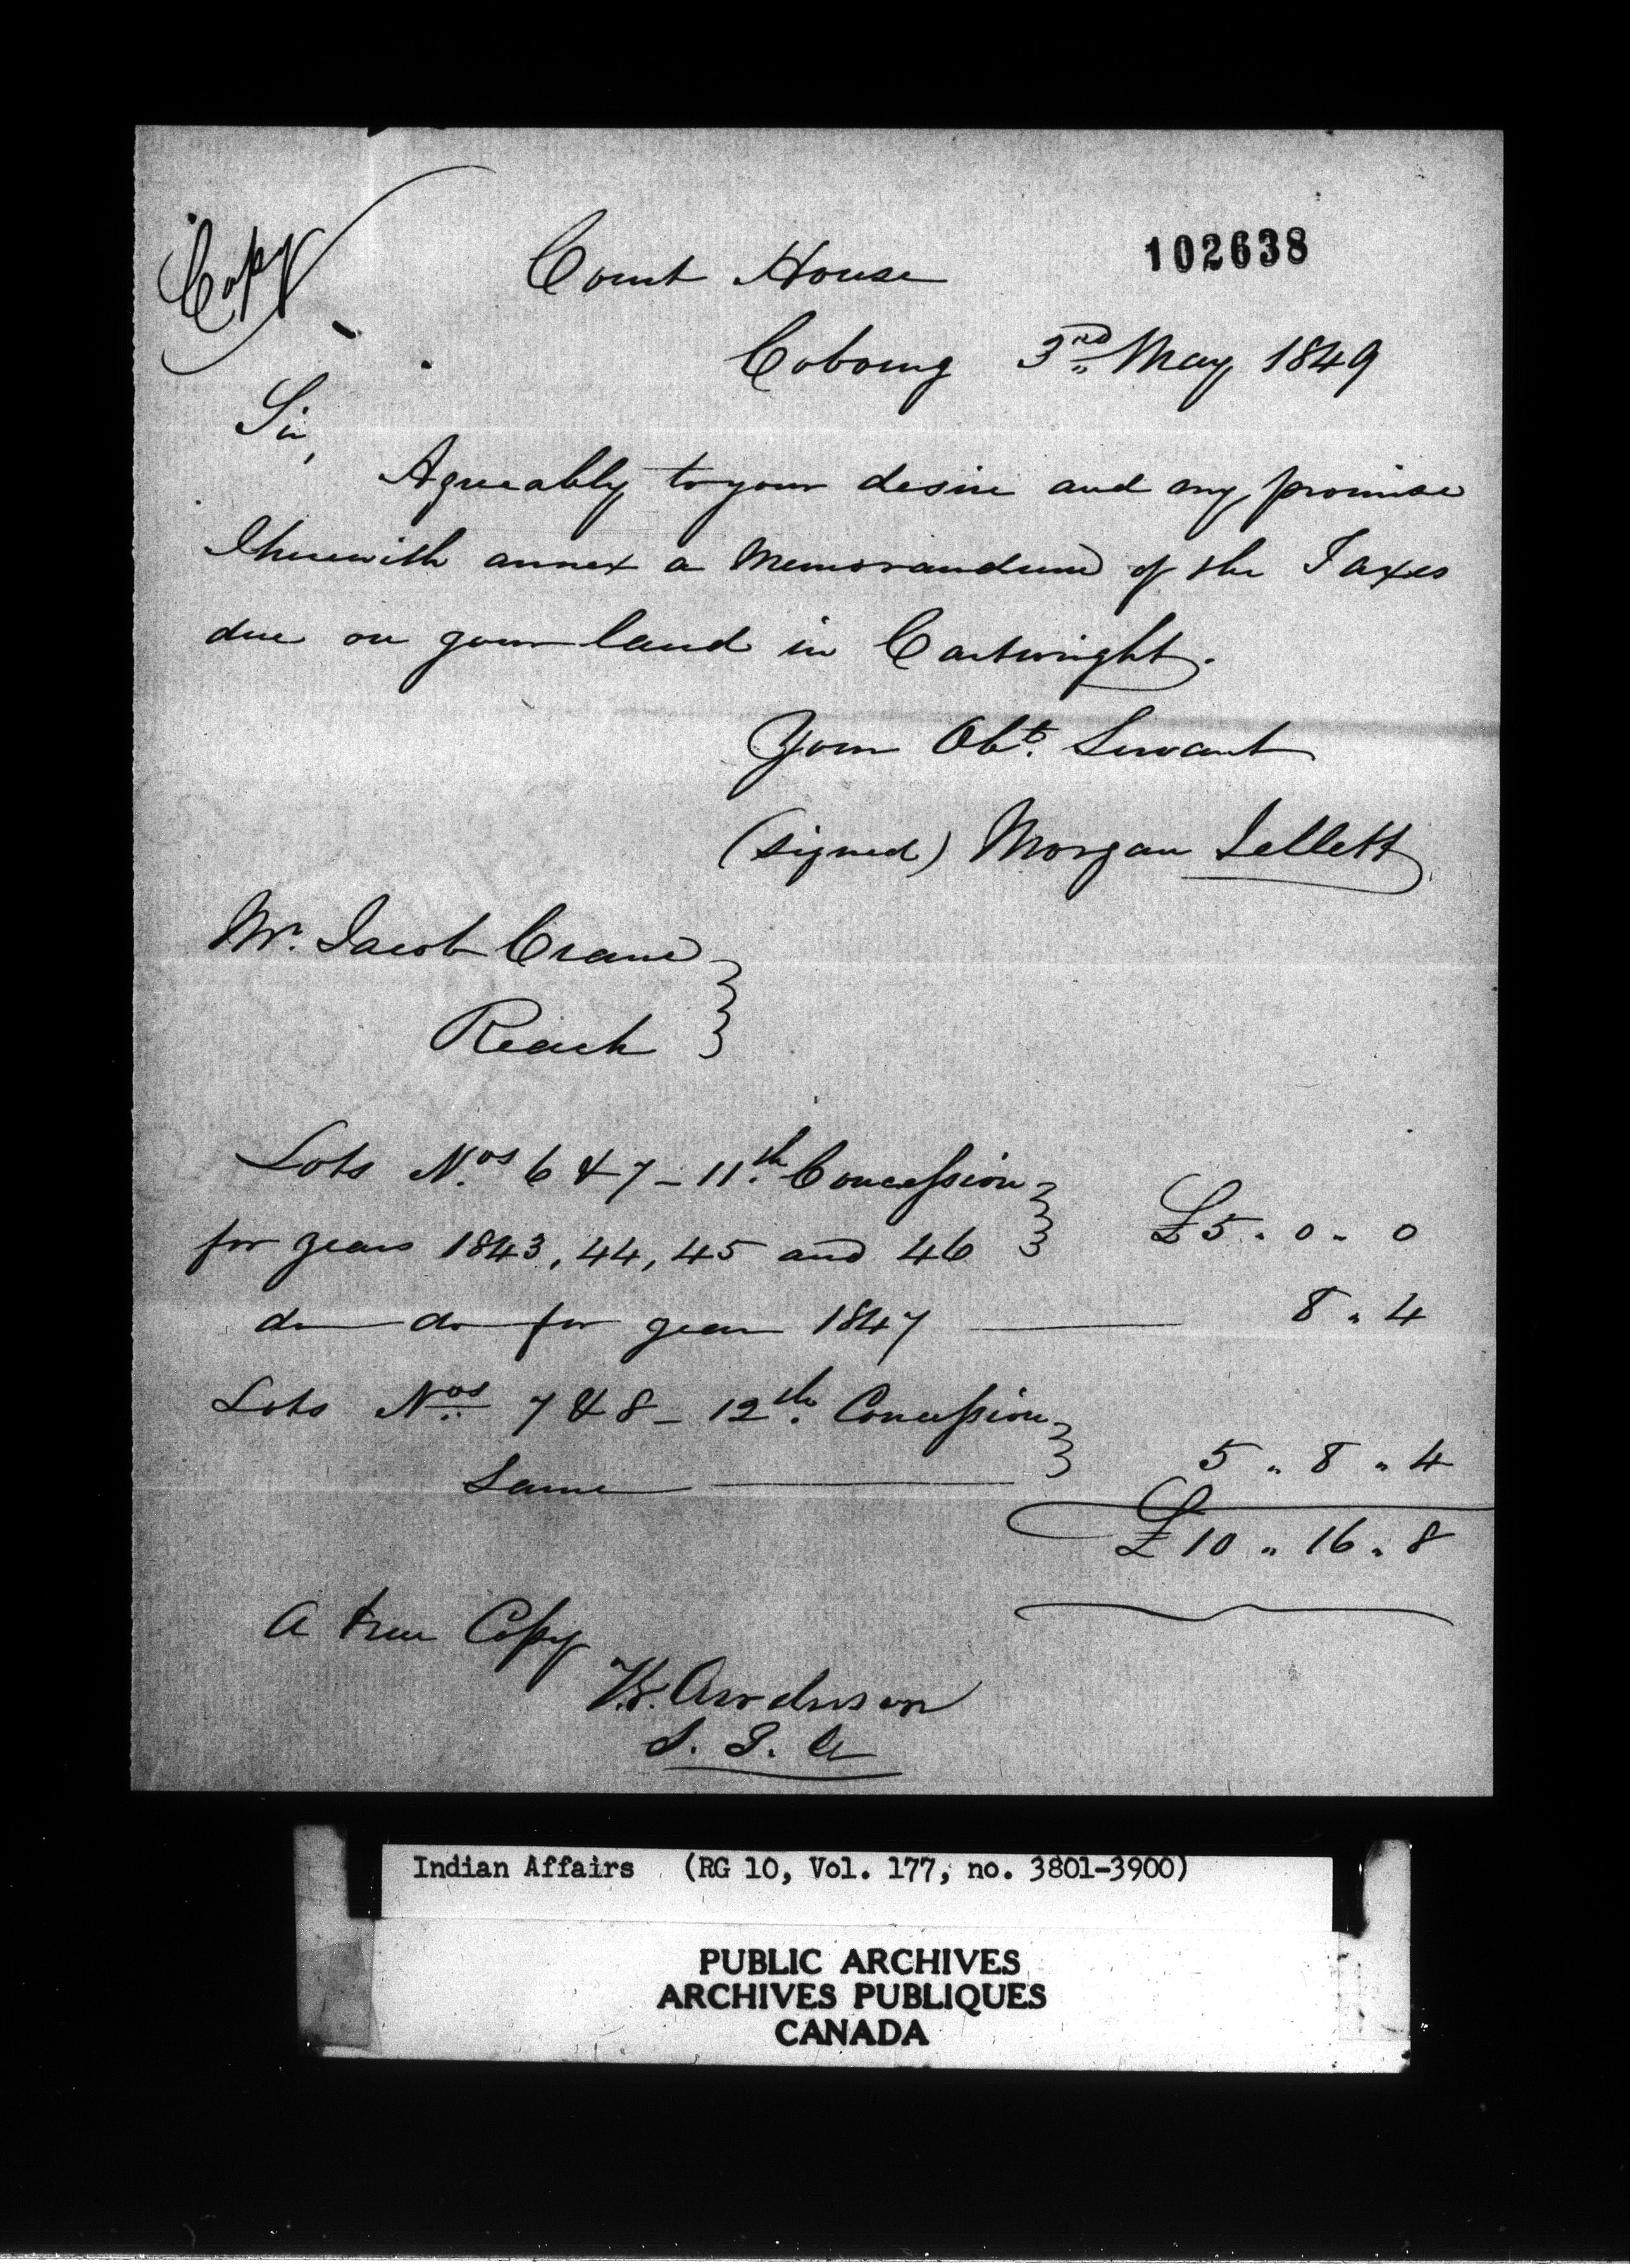 Copy
102638
Court House
Cobourg 3rd May 1849
Sir,
Agreeably to your desire and my promise
I herewith annex a Memorandum of the Taxes
due on your land in Cartwright.
Your Obt. Servant
(signed) Morgan Jellett
Mr. Jacob Crane
Reach
Lots Nos 6 & 7 - 11th Concession
for years 1843, 44, 45 and 46 £5 " 0 " 0
do do for year 1847 8 " 4
Lots Nos 7 & 8 - 12th Concession
Same 5 " 8 " 4
£10 " 16 " 8
A true Copy
Anderson
S. I. A
Indian Affairs (RG 10, Vol. 177, no. 3801-3900)
PUBLIC ARCHIVES
ARCHIVES PUBLIQUES
CANADA